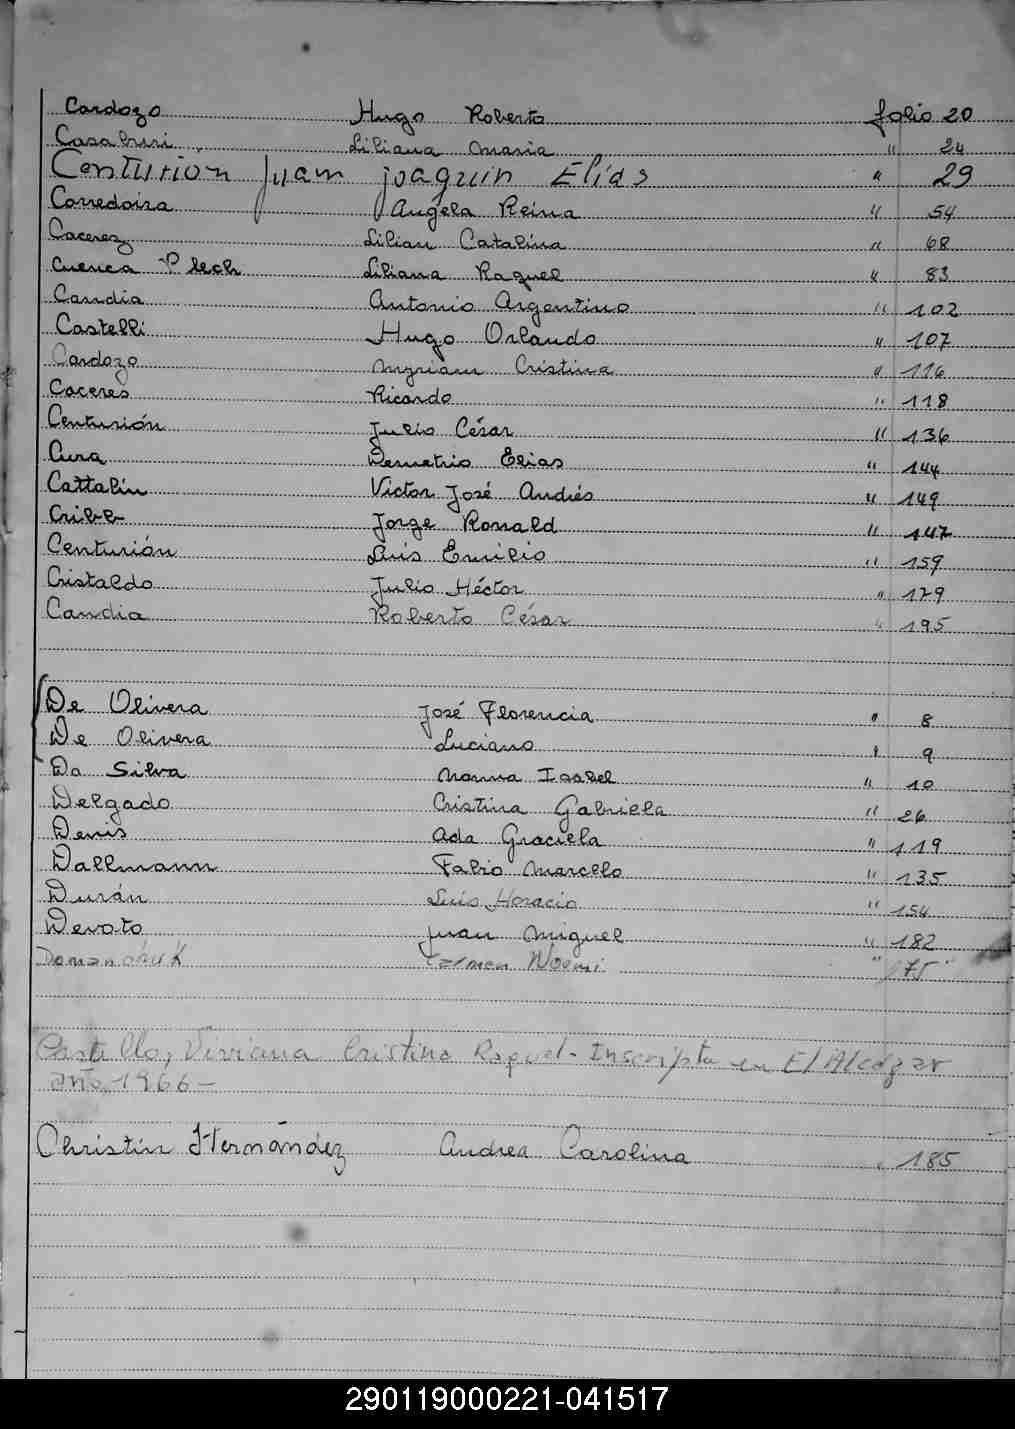 Cardozo Hugo Roberto folio 20
Casaburi Liliana Maria " 24
Centurión Juam Joaquín Elías " 29
Corredoira Angela Reina " 54
Cacerez Lilian Catalina " 68
Cuenca Plech Liliana Raquel " 83
Candia Antonio Argentino " 102
Castelli Hugo Orlando " 107
Cardozo Myriam Cristina " 116
Caceres Ricardo " 118
Centurión Julio César " 136
Cura Demetrio Elias " 144
Cattalin Victor José Andrés " 149
Cribb Jorge Ronald " 147
Centurión Luis Emilio " 159
Cristaldo Julio Héctor " 179
Candia Roberto César " 195
De Olivera José Florencia " 8
De Olivera Luciano " 9
Da Silva Norma Isabel " 10
Delgado Cristina Gabriela " 26
Denis Ada Graciela " 119
Dallmann Fabio Marcelo " 135
Durán Luis Horacio " 154
Devoto Juan Miguel " 182
Domanchuk Carmen Noemi " 175 "
Castillo, Viviana Cristina Raquel - Inscripta en El Alcázar
año 1966 -
Christin Hernández Andrea Carolina " 185
290119000221-041517